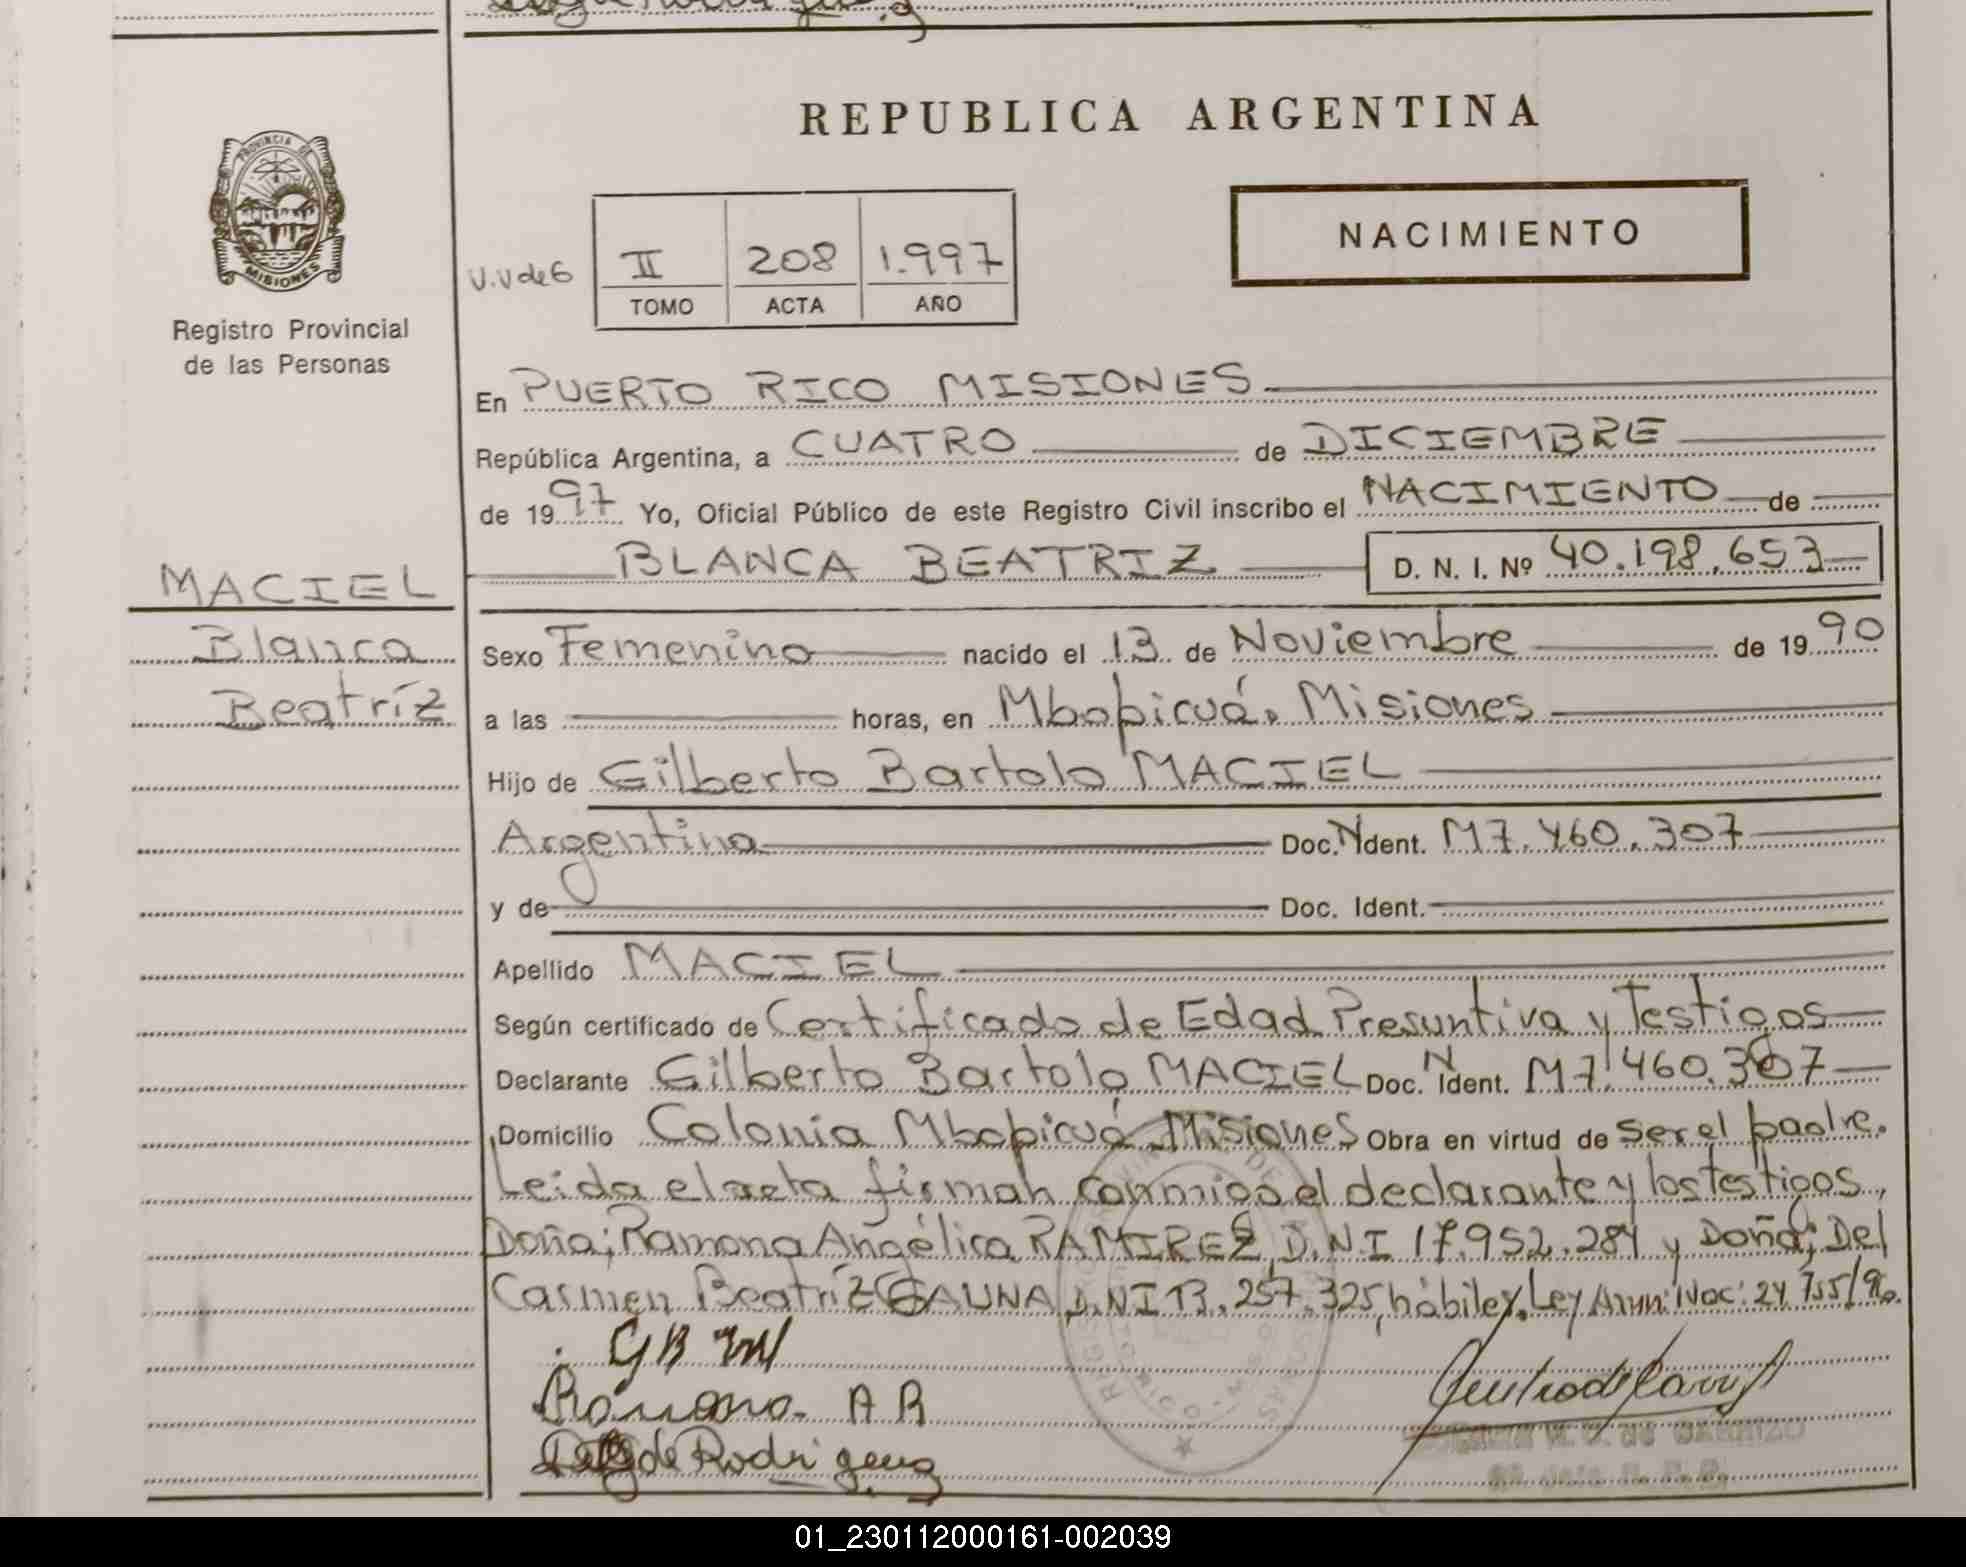 REPUBLICA ARGENTINA
PROVINCIA DE
MISIONES
Registro Provincial
de las Personas
NACIMIENTO
U.V de 6
II 208 1.997
TOMO ACTA AÑO
En PUERTO RICO MISIONES
República Argentina, a CUATRO de DICIEMBRE
de 1997 Yo, Oficial Público de este Registro Civil inscribo el NACIMIENTO de
BLANCA BEATRIZ D. N. I. Nº 40.198.653
MACIEL
Blanca
Beatríz
Sexo Femenino nacido el 13 de Noviembre de 1990
a las horas, en Mbopicuá. Misiones
Hijo de Gilberto Bartolo MACIEL
Argentina Doc. Ident. M7.460.307
y de Doc. Ident.
Apellido MACIEL
Según certificado de Certificado de Edad Presuntiva y Testigos
Declarante Gilberto Bartolo MACIEL Doc. Ident. M7.460.307
Domicilio Colonia Mbopicuá Misiones Obra en virtud de ser el padre.
Leida el acta firman conmigo el declarante y los testigos,
Doña; Ramona Angélica RAMIREZ D.N.I 17.952.284 y Doña; Del
Carmen Beatríz GAUNA D.NI 13.257.325, hábiles. Ley 24.755/96.
GB M
Ramona. A R
de Rodriguez
DE CARRIZO
01_230112000161-002039